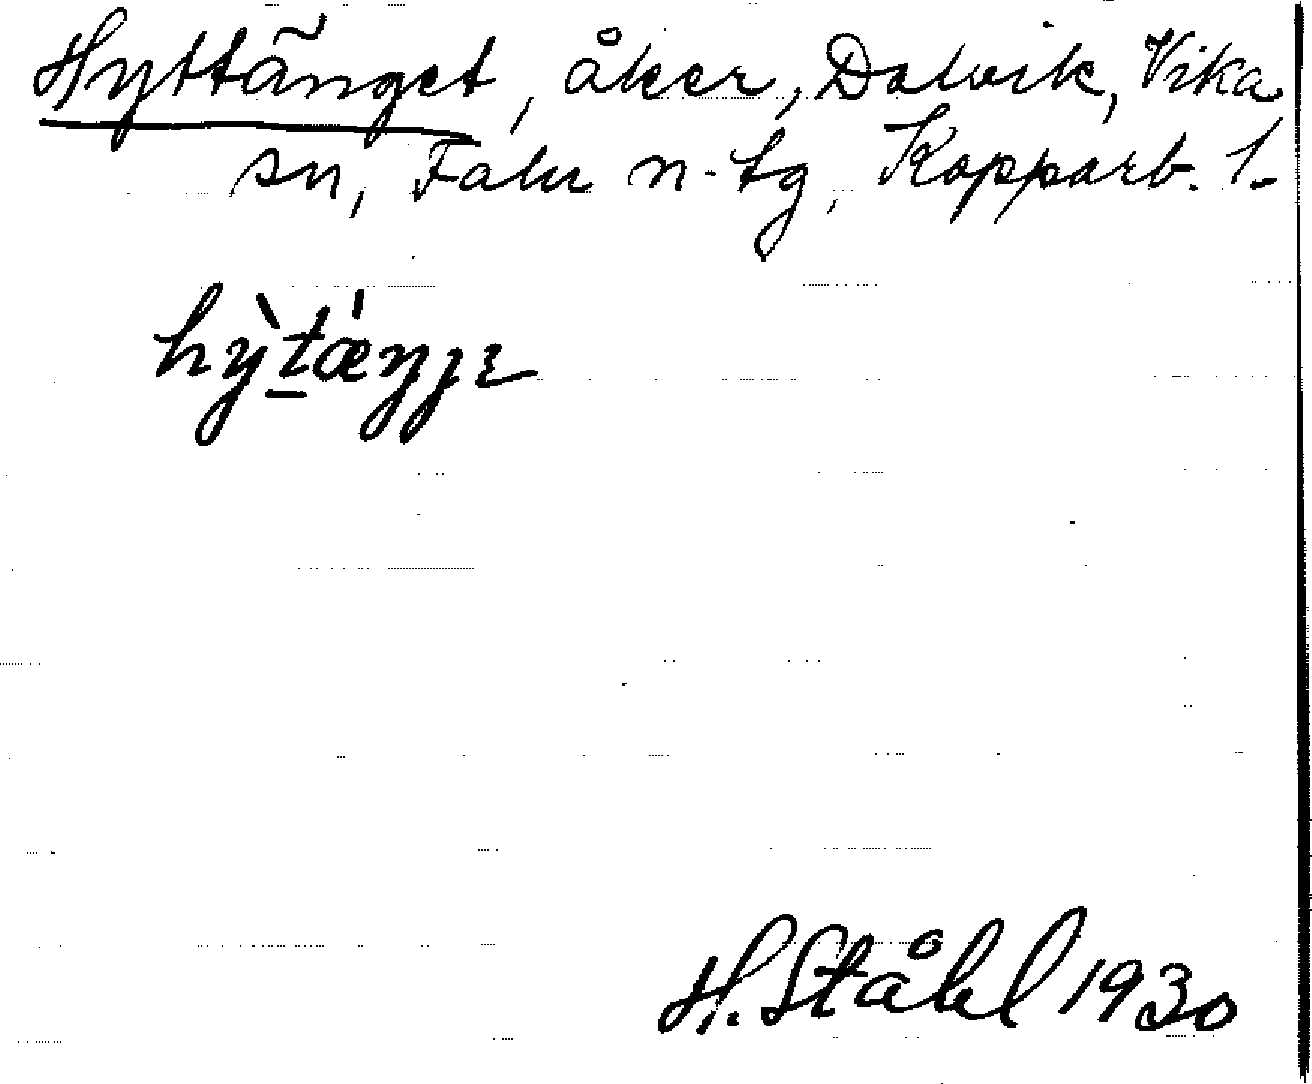 Hyttänget, åker, Dalvik, Vika
sn, Falu n. tg, Kopparb. l.
hỳt̠æ̍ŋjɛ
H. Ståhl 1930